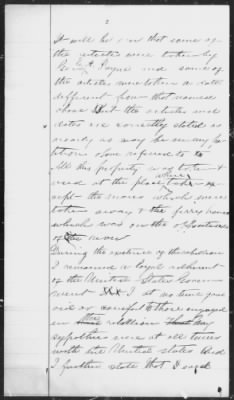 2
It will be seen that some of
the articles were taken by
Payne and some of
the articles were taken a date
different from that named
above But the articles and
dates are correctly stated as
nearly as may be in my pe
titions above referred to
All this property was taken &
used at the place where taken ex
cept the mares which were
taken away & the ferry
which was on the opposite side
of the river
During the existence of the rebellion
I remained a loyal adherent
of the United States Govern
ment I at no time gave
aid or comfort to those engaged
in the rebellion
sympathies were at all times
with the United States And
I further state that I